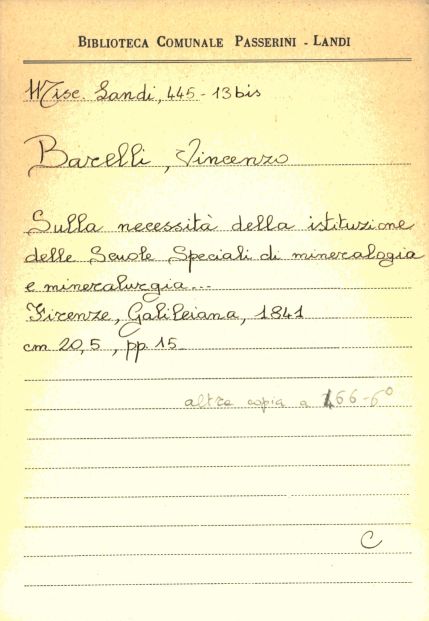 BIBLIOTECA COMUNALE PASSERINI - LANDI
Misc. Landi, 445 - 13 bis
Barelli, Vincenzo
Sulla necessità della istituzione
delle Scuole Speciali di mineralogia
e mineralurgia...
Firenze, Galileiana, 1841
cm 20,5, pp. 15
altra copia a 166-6°
C